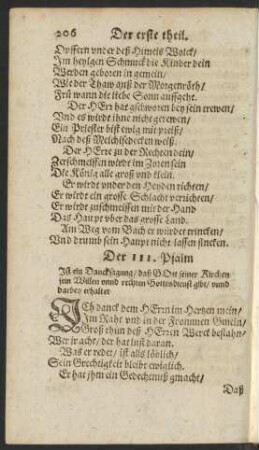 206 Der erste theil.
Opffern vnder deß Himels Wolck/
Im heylgen Schmuck die Kinder dein
Werden geboren in gemein/
Wie der Thaw auß der Morgenröth/
Frü wann die liebe Sonn auffgeht.
Der HErr hat gschworen bey sein trewen/
Vnd es wirdt ihne nicht gerewen/
Ein Priester bist ewig mit preiß/
Nach deß Melchisedecken weiß.
Der HErre zu der Rechten dein/
Zerschmeissen wirdt im Zoren sein
Die König alle groß vnd klein.
Er wirdt vnder den Heyden richten/
Er wirdt ein grosse Schlacht verrichten/
Er wirdt zuschmeissen mit der Hand
Das Haupt vber das grosse Land.
Am Weg vom Bach er würdt trincken/
Vnd drumb sein Haupt nicht lassen sincken.
Der 111. Psalm
Ist ein Dancksagung/ daß GOtt seiner Kirchen
sein Willen vnnd rechten Gottsdienst gibt/ vnnd
darbey erhaltet
ICh danck dem HErrn im Hertzen mein/
Im Raht vnd in der Frommen Gmein/
Groß thun deß HErren Werck bestahn/
Wer jr acht/ der hat lust daran.
Was er redet/ ist als löblich/
Sein Grechtigkeit bleibt ewiglich.
Er hat jhm ein Gedechtnuß gmacht/
Daß